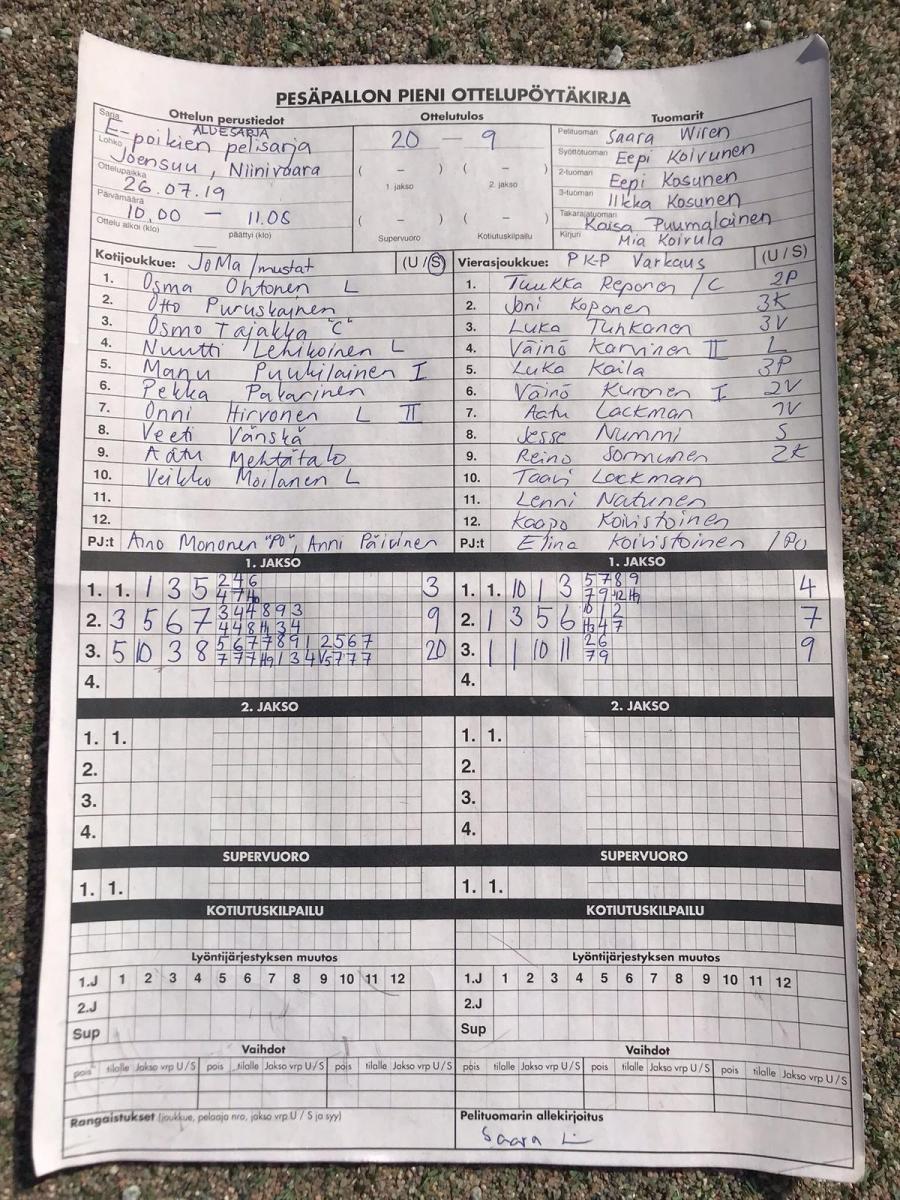 PESÄPALLON PIENI OTTELUPÖYTÄKIRJA
Ottelun perustiedot
Ottelutulos
Tuomarit
Sarja
ALDESARJA
E-poikien pelisarja
Lohko
Joensuu, Niinivaara
Ottelupaikka
26.07.19
Päivämäärä
10.00 – 11.08
Ottelu alkoi (klo) päättyi (klo)
20 – 9
( – ) ( – )
1. jakso 2. jakso
( – ) ( – )
Supervuoro Kotiutuskilpailu
Pelituomari Saara Wiren
Syöttötuomari Eepi Koivunen
2-tuomari Eepi Kosunen
3-tuomari Ilkka Kosunen
Takarajatuomari Kaisa Puumalainen
Kirjuri Mia Koirula
Kotijoukkue: JoMa/mustat (U/S)
1. Osma Ohtonen L
2. Otto Puruskainen
3. Osmo Tajakka "C"
4. Nuutti Lehikoinen L
5. Manu Puukilainen I
6. Pekka Pakarinen
7. Onni Hirvonen L II
8. Veeti Vänskä
9. Aatu Mehtätalo
10. Veikko Moilanen L
11.
12.
PJ:t Aino Mononen "PO", Anni Päivinen
Vierasjoukkue: PK-P Varkaus (U/S)
1. Tuukka Reponen /C 2P
2. Joni Koponen 3K
3. Luka Tuhkanen 3V
4. Väinö Karvinen II L
5. Luka Kaila 3P
6. Väinö Kuronen I 2V
7. Aatu Lackman 1V
8. Jesse Nummi S
9. Reino Sormunen 2K
10. Taavi Lackman
11. Lenni Natunen
12. Kaapo Koivistoinen
PJ:t Elina Koivistoinen /PO
1. JAKSO
1. 1. 1 3 5 2 4 6 3
4 7
2. 3 5 6 7 3 4 4 8 9 3 9
4 4 8 3 4
3. 5 10 3 8 5 6 7 7 8 9 1 2 5 6 7 20
7 7 7 1 3 4 7 7 7
4.
1. JAKSO
1. 1. 10 1 3 5 7 8 9 4
7 9 12
2. 1 3 5 6 10 1 2 7
4 7
3. 1 1 10 11 2 6 9
7 9
4.
2. JAKSO
1. 1.
2.
3.
4.
2. JAKSO
1. 1.
2.
3.
4.
SUPERVUORO
1. 1.
SUPERVUORO
1. 1.
KOTIUTUSKILPAILU
KOTIUTUSKILPAILU
Lyöntijärjestyksen muutos
1.J 1 2 3 4 5 6 7 8 9 10 11 12
2.J
Sup
Lyöntijärjestyksen muutos
1.J 1 2 3 4 5 6 7 8 9 10 11 12
2.J
Sup
Vaihdot
pois tilalle Jakso vrp U/S pois tilalle Jakso vrp U/S pois tilalle Jakso vrp U/S
Vaihdot
pois tilalle Jakso vrp U/S pois tilalle Jakso vrp U/S pois tilalle Jakso vrp U/S
Rangaistukset (joukkue, pelaaja nro, jakso vrp U / S ja syy)
Pelituomarin allekirjoitus
Saara